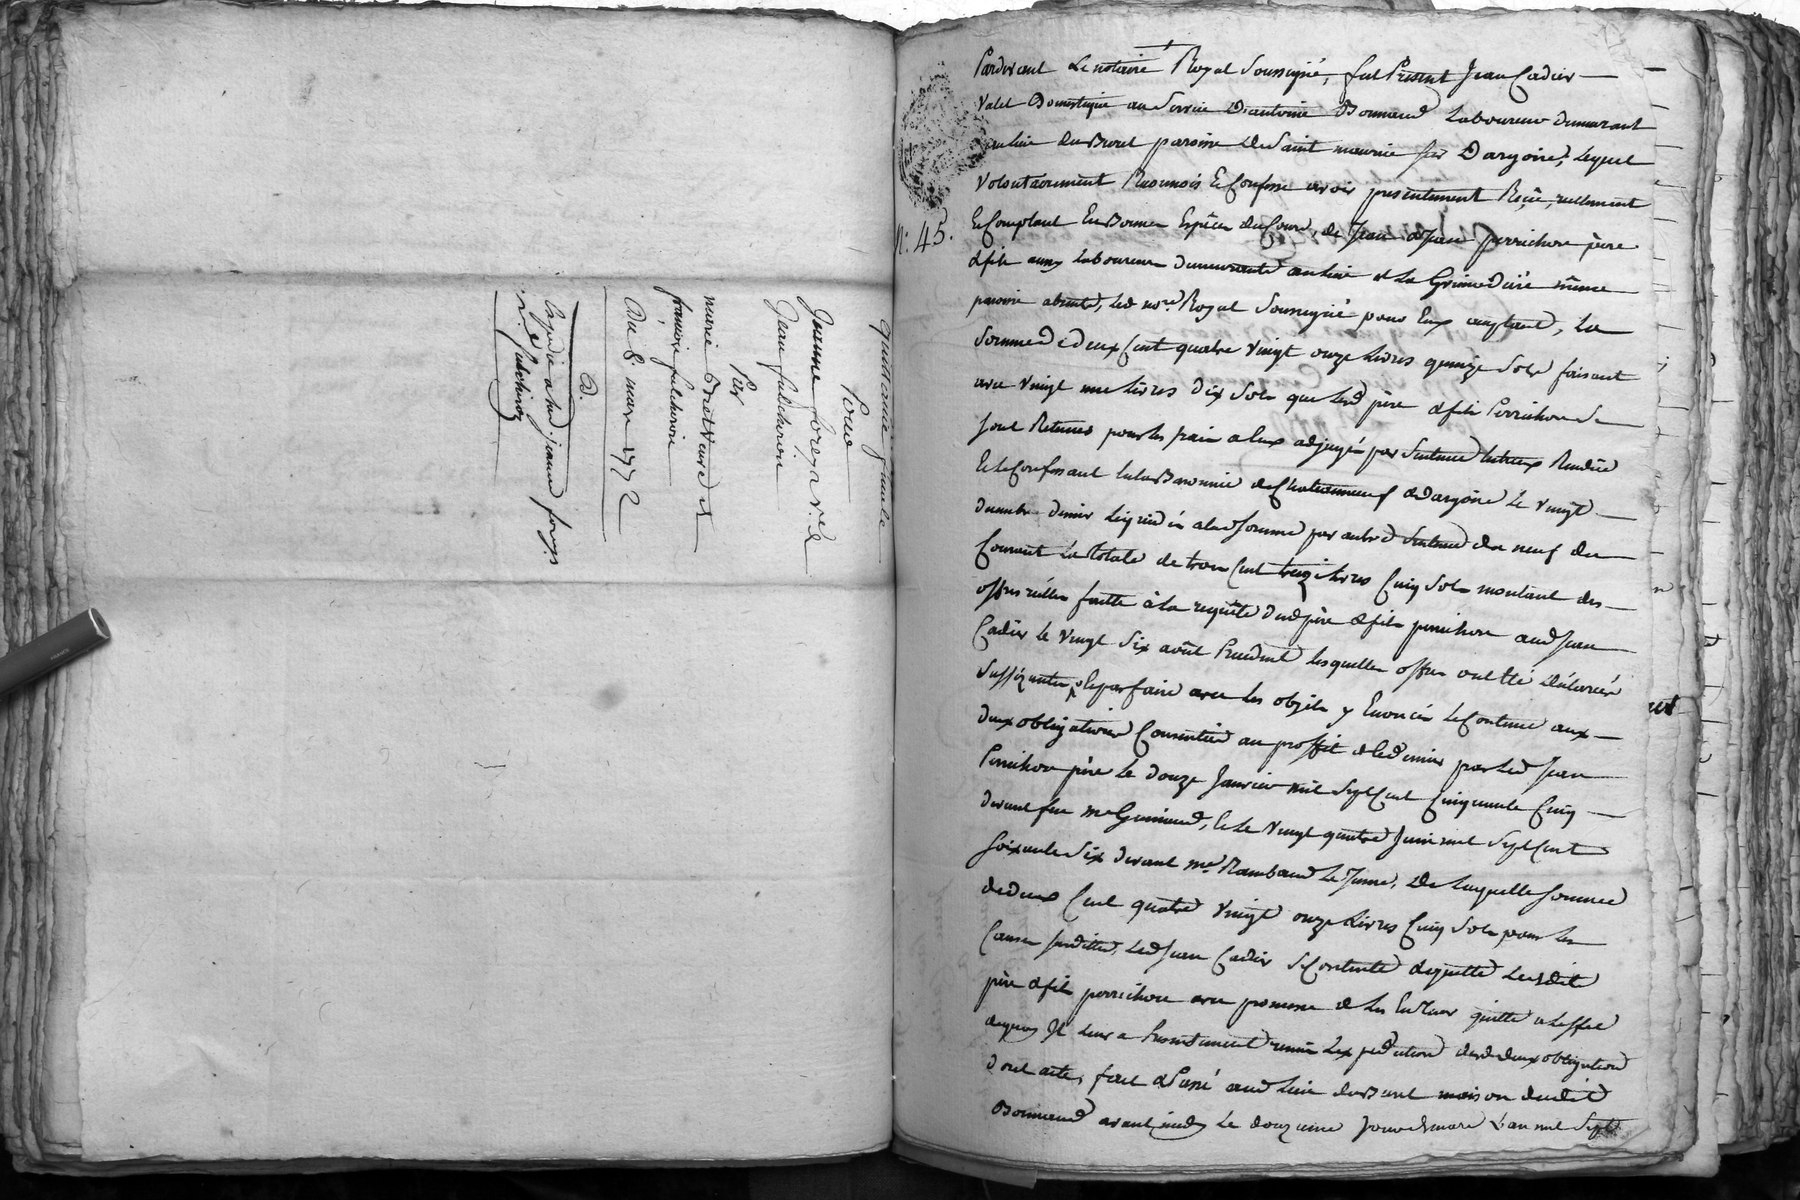 quittance finale
Pour
Jeanne forez a v.e d
Jean fulcheron
Par
marie Bret veuve d et
francois fulcheron
Du 8 mars 1772
D.
Expedie a lad jeanne forezs
f. d. fulcheron
N.° 45.
Pardevant Le notaire Royal Soussigné, fut Present Jean Cadier
Valet Domestique au Service D'antoine Bonnand Laboureur demeurant
au lieu du Buret paroisse De Saint maurice sur Dargoire, Lequel
Volontairement Reconnois & Confesse avoir presentement Reçu, reellement
& Comptant En Bonnes Espèces du Cours, de Jean & Jean perrichon père
& fils aussy laboureurs demeurants au lieu de La Grimodière même
paroisse absents, led no.re Royal Soussigné pour Eux acceptant, La
Somme de deux Cent quatre Vingt onze livres quinze Sols faisant
avec Vingt une livres dix Sols que lesd père & fils Perrichon Se
Sont Retenus pour les frais a Eux adjugés par Sentence Rendüe
en la Baronnie de Chateauneuf & Dargoire Le Vingt
decembre dernier a lad Somme par autre Sentence du neuf du
Courant La totale de trois Cent treize livres Cinq Sols montant des
offres réelles faitte à la requête desd père & fils perrichon aud Jean
Cadier Le Vingt Six août Precedent lesquelles offres ont été Déclarées
Suffizantes & parfaire avec les objets y Enoncés & Contenu aux
deux obligations Consenties au proffit par led Jean
Perrichon père Le douze Janvier mil Sept Cent Cinquante Cinq
devant feu m.e Guinand, & Le Vingt quatre Juin mil Sept Cent
Soixante Six devant m.e Rambaud Le Jeune, De laquelle Somme
de deux Cent quatre Vingt onze Livres Cinq Sols pour les
Causes Susdittes, led Jean Cadier Se Contente & quitte Lesdits
père & fils perrichon avec promesse de les En Tenir quitte a Leffet
dequoy Il leur a Presentement remis Lexpedition desd deux obligations
Dont acte, fait & Passé aud lieu du Buret maison dudit
Bonnand avant midy Le douzieme Jour de mars L'an mil Sept